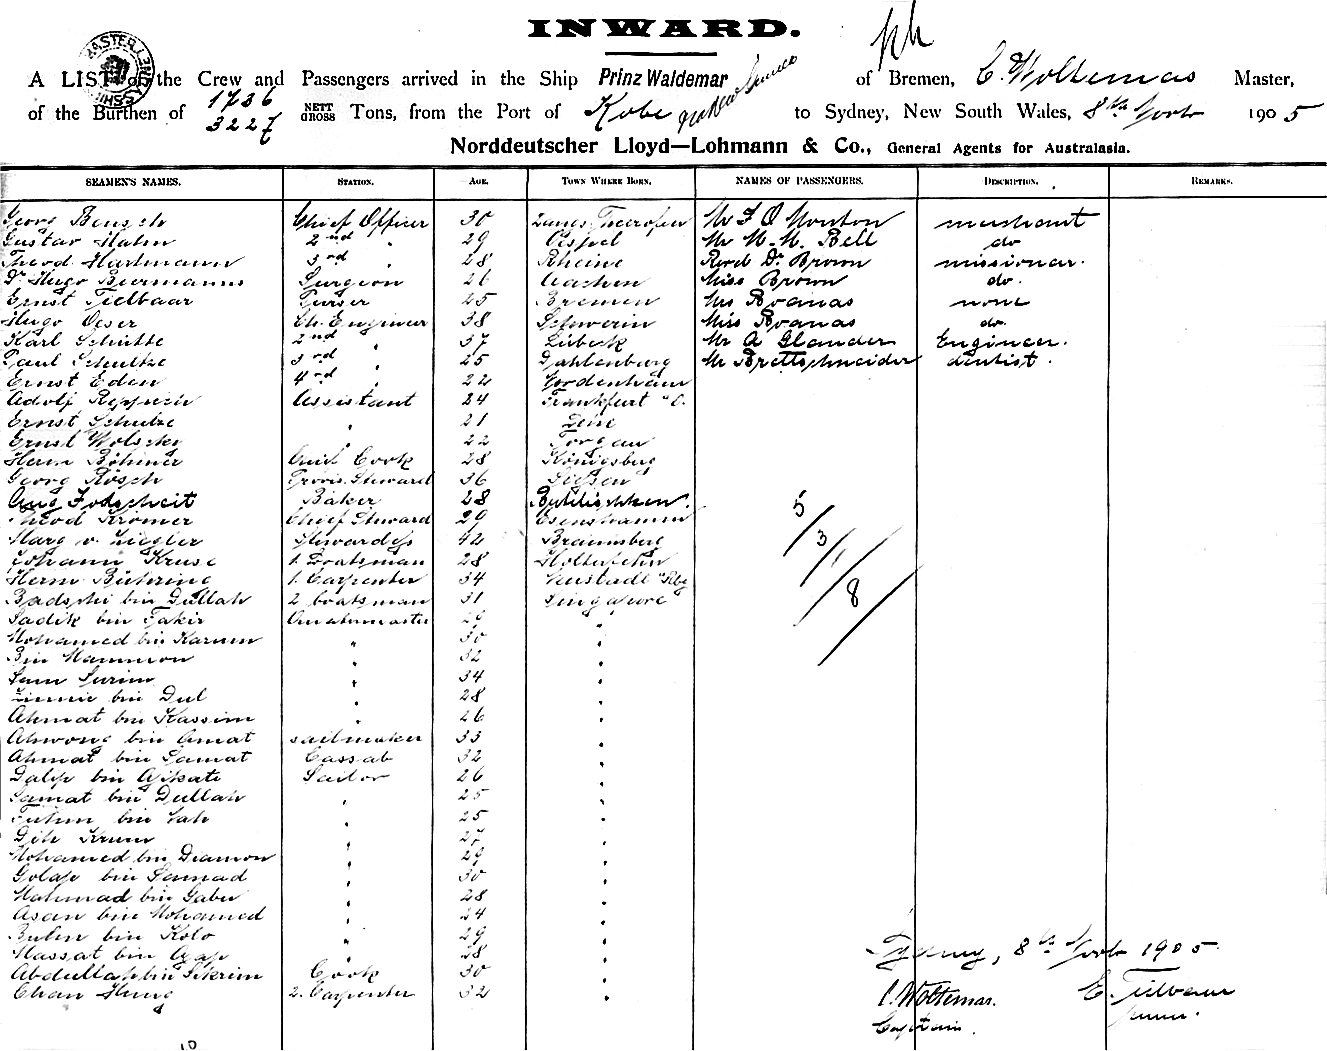 INWARD.
A LIST of the Crew and Passengers arrived in the Ship Prinz Waldemar of Bremen, C. Woltemas Master,
of the Burthen of 1736 3227 NETT GROSS Tons, from the Port of Kobe to Sydney, New South Wales, 8th 1905
Norddeutscher Lloyd—Lohmann & Co., General Agents for Australasia.
SEAMEN'S NAMES. STATION. AGE. TOWN WHERE BORN. NAMES OF PASSENGERS. DESCRIPTION. REMARKS.
Georg Chief Officer 30 Mr F O Mouton merchant
Gustav Hahn 2nd " 29 Aispel Mr M. M. Bell do
Theod. Hartmann 3rd " 28 Rheine Revd Dr Brown missionar.
Dr Hugo Biermanns Surgeon 26 Aachen Miss Brown do.
Ernst Tielbaar Purser 25 Bremen Mrs Rvanas none
Hugo Oeser Ch. Engineer 38 Schwerin Miss Rvanas do.
Karl Schütte 2nd " 37 Lübeck Mr A Glander Engineer.
Paul Schultze 3rd " 25 Dahlenburg Mr Brettschneider dentist.
Ernst Eden 4th " 22 Nordenham
Adolf Assistant 24 Frankfurt "O.
Ernst Schulze " 21
Ernst 22 Torgau
Herm Böhmer Chief Cook 28 Königsberg
Georg Rösch Provis. Steward 36 Giessen
Aug Fodscheit Baker 28
Theod Krömer Chief Steward 29 Esenshamm
Marg v. Ziegler Stewardess 42 Braunsberg
Johann Kruse 1. Boatsman 28 Holtefehn
Herm Bühring 1. Carpenter 34 Neustadt
Badshi bin Dullah 2 boatsman 31 Singapore
Sadik bin Fakir Quatermaster 29 "
Mohamed bin Karum " 30 "
Bin Mammon " 32 "
Sam Surin " 34 "
bin Dul " 28 "
Ahmat bin Kassim " 26 "
Ahwong bin Amat sailmaker 33 "
Ahmat bin Samat Cassab 32 "
Dalip bin Sailor 26 "
Samat bin Dullah " 25 "
bin Jah " 25 "
" 27 "
Mohamed bin Diamon " 29 "
Golap bin Samad " 30 "
Mahmad bin Gabu " 28 "
Asan bin Mohamed " 24 "
bin Kolo " 29 "
Massat bin " 28 "
Abdullah bin Sikrim Cook 30 "
Chan Hung 2. Carpenter 32 "
5
3
1
8
Sydney, 8th 1905.
C. Woltemas. E. Tielbaar
Captain. purser.